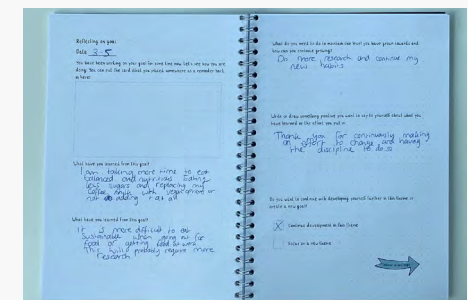 Reflecting on goal
Date 3-5
You have been working on your goal for some time now. Let's see how you are
doing. You can put the card about you placed somewhere as a reminder back
in here:
What have you learned from this goal?
I am taking more time to eat
balanced and nutritious. Eating
less sugars and replacing my
coffee milk with vegetarian or
not adding it at all
What have you learned from this goal?
It is more difficult to eat
sustainable when going out for
food or getting food to work.
This will probably require more
research
What do you need to do to maintain the trust you have grown towards and
how can you continue growing?
Do more research and continue my
new habits
Write or draw something positive you want to say to yourself about what you
have learned or the effort you put in
Thank you for continuously making
an effort to change and having
the discipline to do so
Do you want to continue with developing yourself further in this theme or
explore a new goal?
X Continue development in this theme